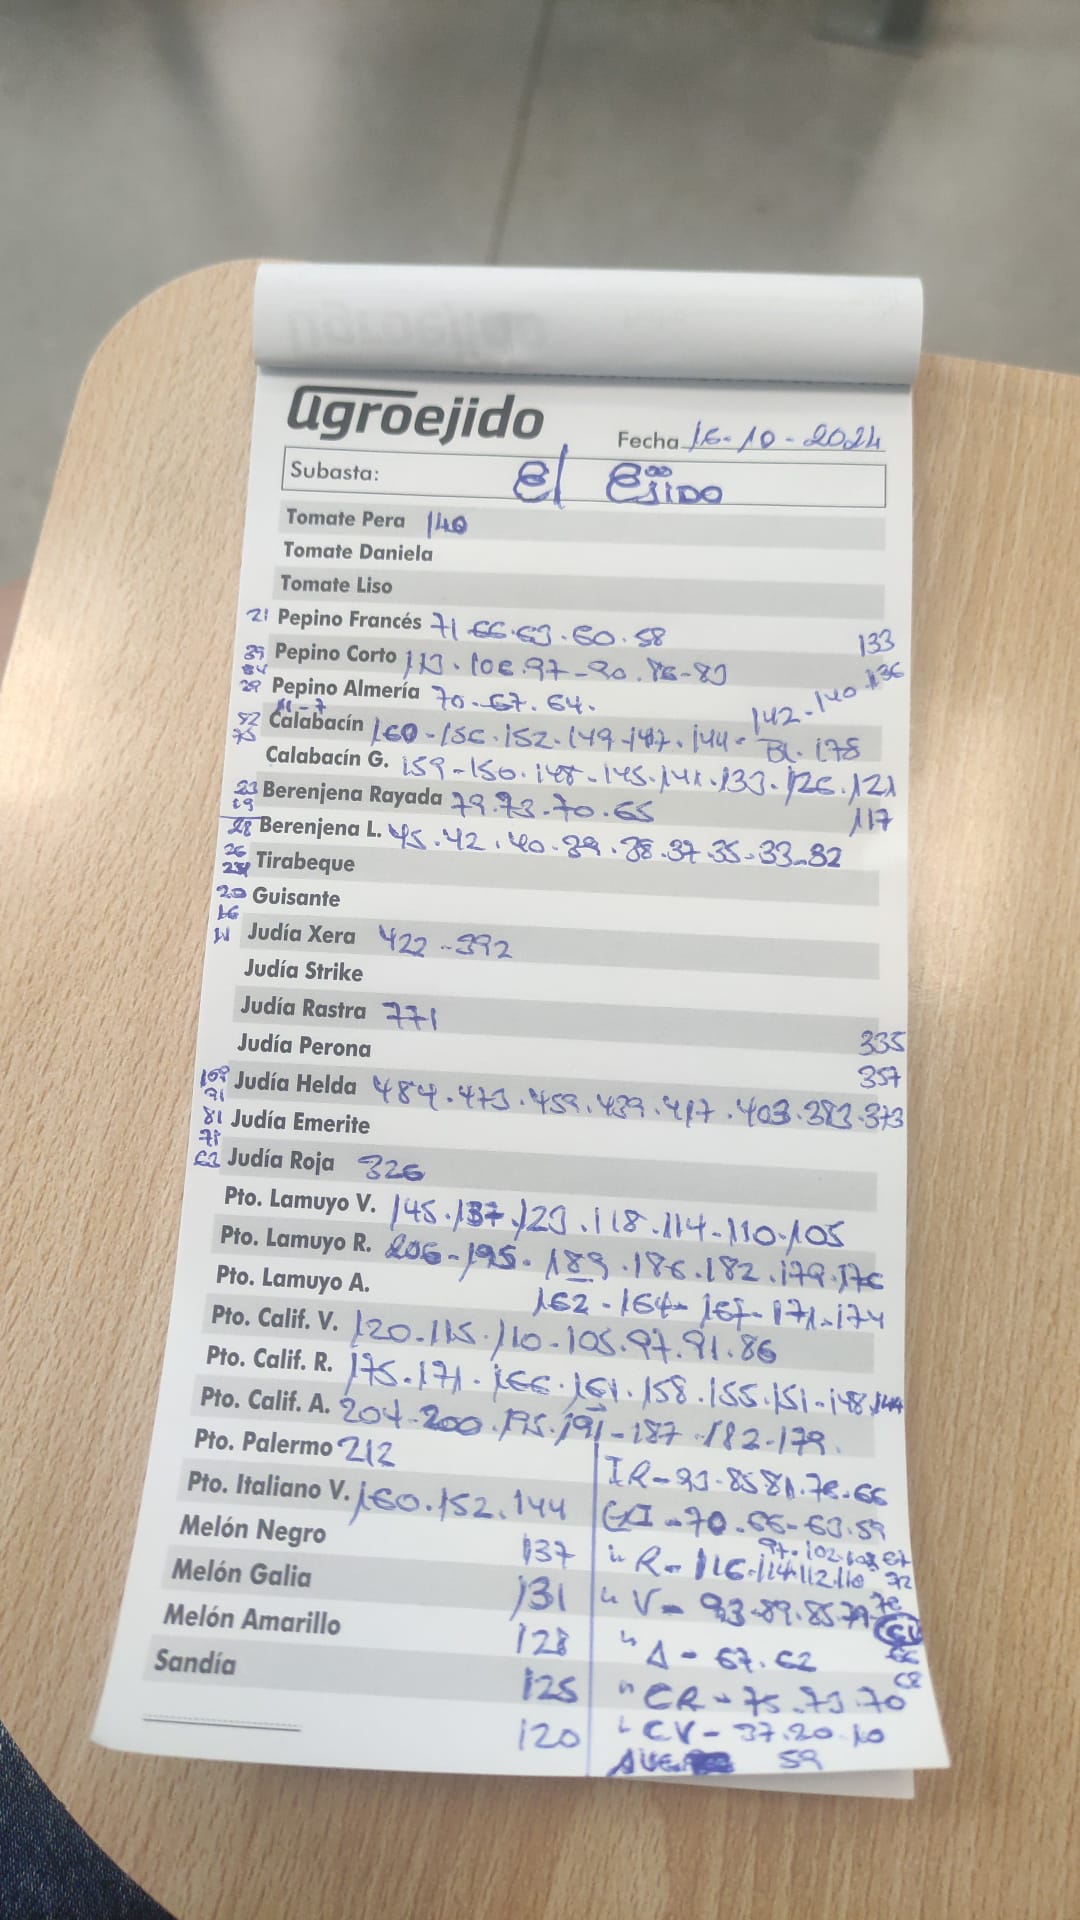 agroejido
Fecha 16-10-2024
Subasta: El Ejido
Tomate Pera 140
Tomate Daniela
Tomate Liso
21 Pepino Francés 71.66.63.60.58 133
39 Pepino Corto 113.106.97-90.86-83 136
34
29 Pepino Almería 70-67.64. 142-140
11-7
52 Calabacín 160-156.152.149-147.144- BL. 178
75
Calabacín G. 159-150.148-145.141.133.126.121
23 Berenjena Rayada 79.73-70.65 117
19
28 Berenjena L. 45.42.40.39.38.37.35-33-32
26
Tirabeque
20 Guisante
16
11 Judía Xera 422-392
Judía Strike
Judía Rastra 771
335
Judía Perona 357
109 Judía Helda 484.473.459.439.417.403.383.373
91
81 Judía Emerite
71
62 Judía Roja 326
Pto. Lamuyo V. 145.137.123.118.114-110.105
Pto. Lamuyo R. 206-195.189.186.182.179.176
Pto. Lamuyo A. 162-164-167-171-174
Pto. Calif. V. 120.115.110-105.97.91.86
Pto. Calif. R. 175.171.166.161.158.155.151-148.144
Pto. Calif. A. 204-200.195.191-187.182-179.
Pto. Palermo 212
IR-93-85 81.76-66
Pto. Italiano V. 160.152.144
GI-70.66-63.59
Melón Negro 137
97-102.108 67
" R-116.114.112.110 72
Melón Galia 131
" V-93-89.85.79 76
Melón Amarillo 128
" A-67.62
66
Sandía 125
" CR-75.73.70
120
" CV-37.20.10
AVE. 59